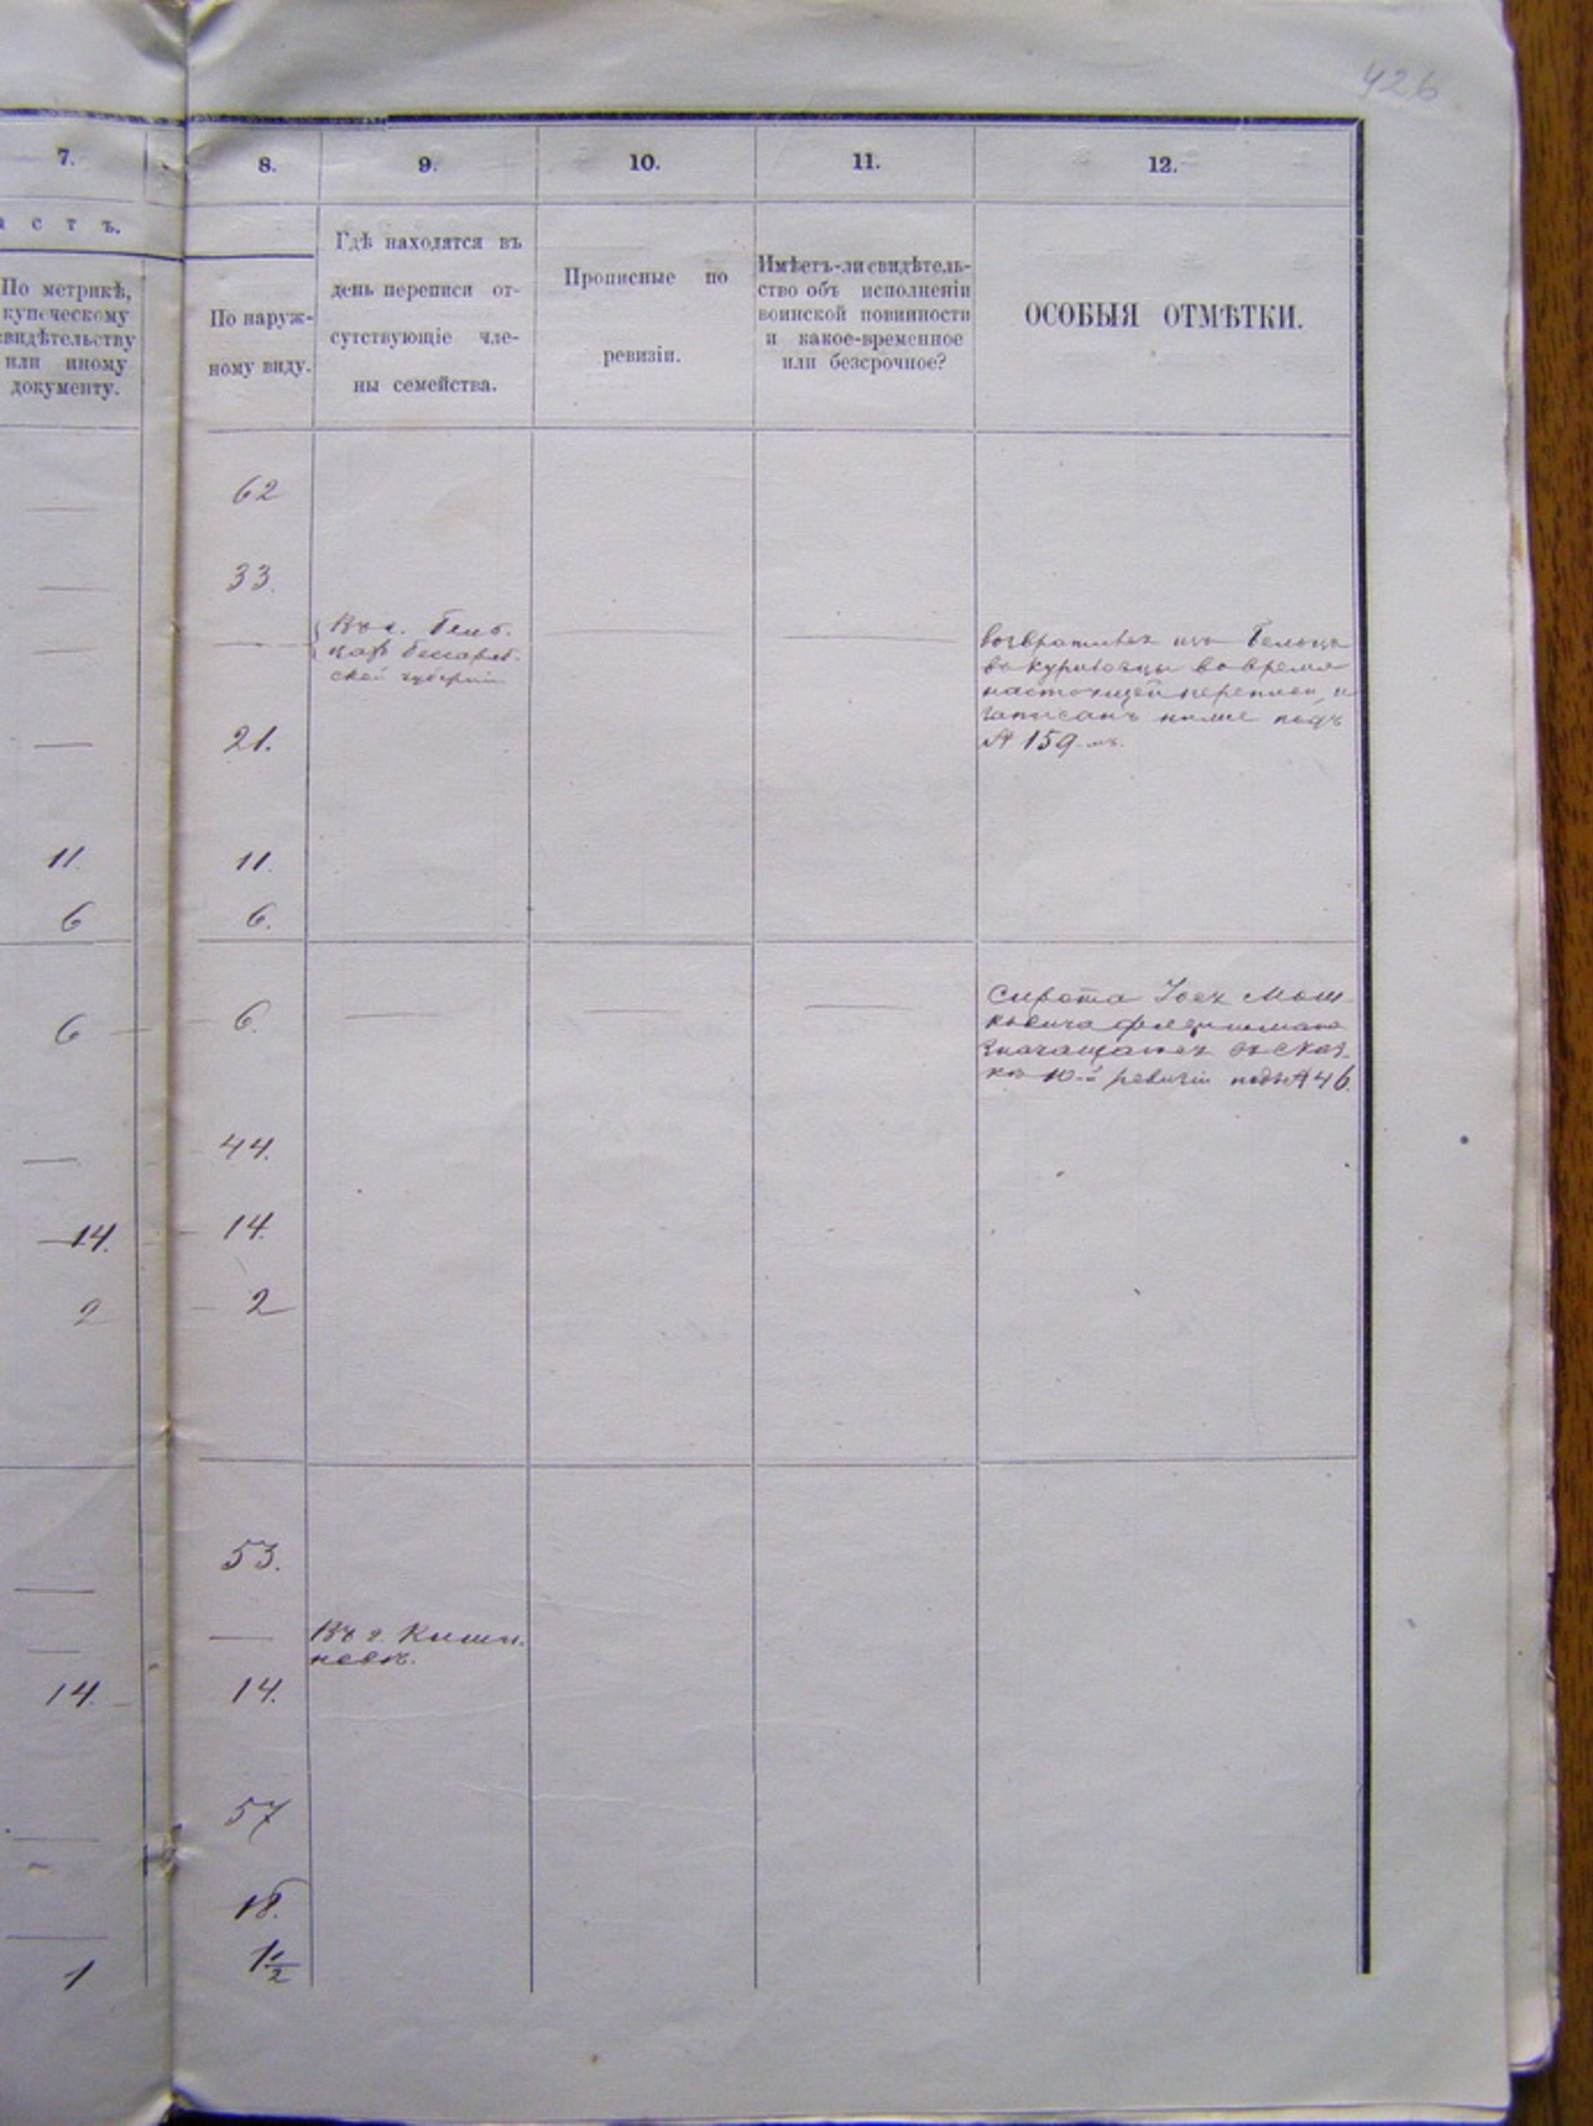 426
7.
8.
9.
10.
11.
12.
а с т ъ.
По метрикѣ,
купеческому
свидѣтельству
или иному
документу.
По наруж-
ному виду.
Гдѣ находятся въ
день переписи от-
сутствующіе чле-
ны семейства.
Прописные по
ревизіи.
Имѣетъ-ли свидѣтель-
ство объ исполненіи
воинской повинности
и какое-временное
или безсрочное?
ОСОБЫЯ ОТМѢТКИ.
62
33.
Въ г. Бель-
цахъ Бессараб-
ской губерніи
возвратился изъ Бельцъ
въ во время
настоящей переписи и
записанъ ниже подъ
№ 159-мъ.
21.
11. 11.
6 6.
6 6.
Сирота Мош-
ковича
значащагося въ сказ-
кѣ 10-й ревизіи подъ № 46.
44.
14. 14.
2 2
53.
Въ г. Киши-
невѣ.
14. 14.
57
18.
1 1 1/2